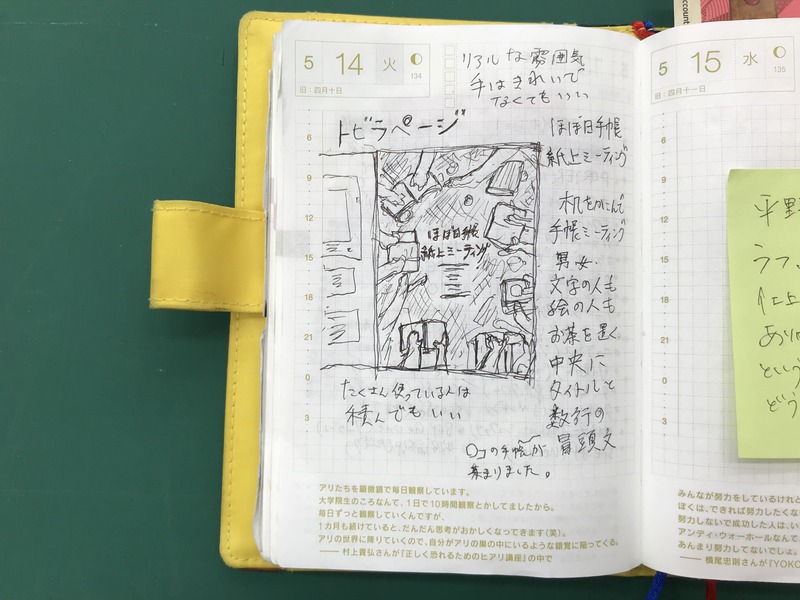 5 14 火
134
旧:四月十日
リアルな雰囲気
手はきれいで
なくてもいい
トビラページ
ほぼ日手帳
紙上ミーティング
机をかこんで
手帳ミーティング
男・女・
文字の人も
絵の人も
お茶を置く
中央に
タイトルと
数行の
冒頭文
ほぼ日手帳
紙上ミーティング
たくさん使っている人は
積んでもいい
〇コの手帳が
集まりました。
6
9
12
15
18
21
0
3
アリたちを顕微鏡で毎日観察しています。
大学院生のころなんて、1日で10時間観察とかしてましたから。
毎日ずっと観察していくんですが、
1カ月も続けていると、だんだん思考がおかしくなってきます(笑)。
アリの世界に降りていくので、自分がアリの巣の中にいるような錯覚に陥ってくる。
――村上貴弘さんが『正しく恐れるためのヒアリ講座』の中で
5 15 水
135
旧:四月十一日
6
9
12
15
18
21
0
3
平野
うつ、
ありの
という
どう
みんなが努力をしているけれど
ぼくは、できれば努力したくない
努力しないで成功した人は、い
アンディ・ウォーホールなんて
あんまり努力してないでしょ。
――横尾忠則さんが『YOKO
account